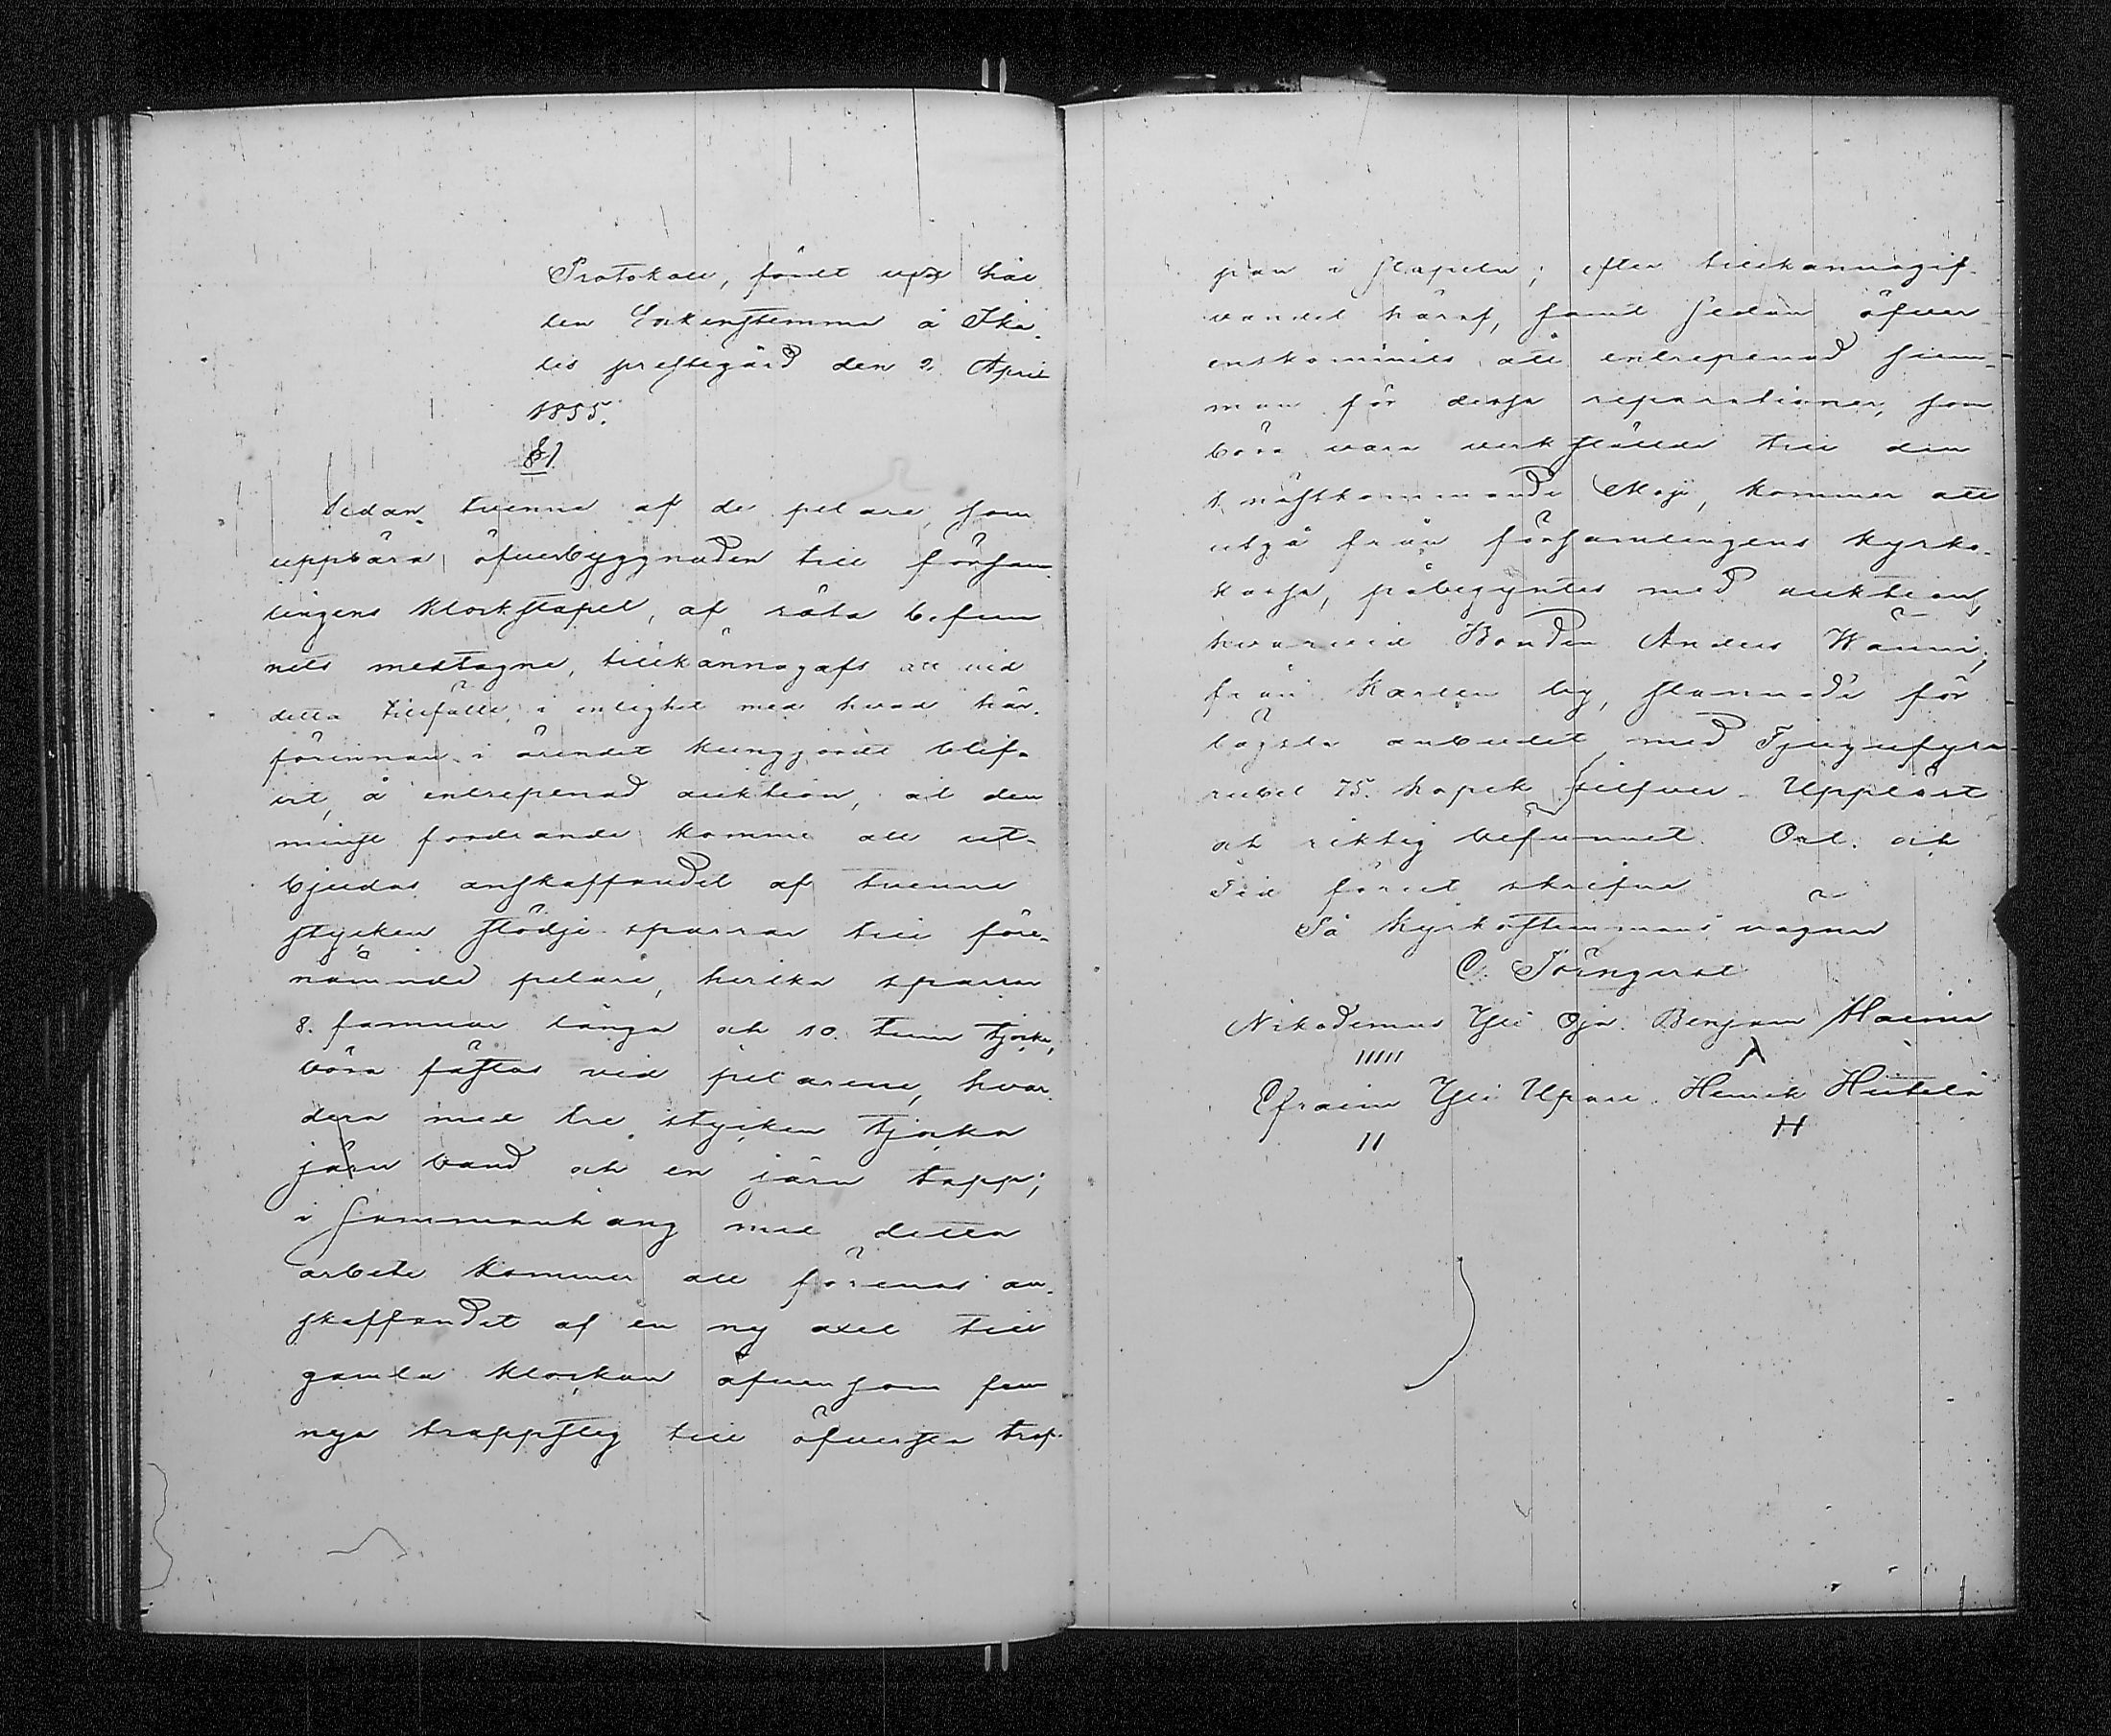 Protokoll, fördt uppå hål
len Sockenstemma å Ika-
lis prestegård den 2. April
1855.
§1
Sedan tvenne af de pelare, som
uppbära öfverbyggnaden till försam-
lingens klockstapel, af röta befun
nits medtagne, tillkännagafs att vid
detta tillfälle, i enlighet med hvad här-
förinnan i ärendet kungjordt blif-
vit, å entrepenad auktion, åt den
minst fordrande komme att ut-
bjudas anskaffandet af tvenne
stycken stödje sparrar till före-
nämnde pelare, hvilka sparrar
8. famnar långa och 10. tum tjocka,
böra fästas vid pelarene, hvar-
dera med tre stycken tjocka
järn band och en järn tapp;
i sammanhang med detta
arbete kommer att förenas an-
skaffandet af en ny axel till
gamla klockan äfvensom fem
nya trappsteg till öfversta trap-
pan i stapeln; efter tillkännagif-
vandet häraf, samt sedan öfver
enskommits att entrepenad sum-
man för dessa reparationer, som
böra vara verkställde till den
1 nästkommande Maji, kommer att
utgå från församlingens kyrko-
kassa, påbegyntes med auktion,
hvarvid Bonden Anders Wänni,
från Kartu by, stannade för
lägsta anbudet med Tjugufyra
rubel 75. kopek silfver. Uppläst
och riktig befunnet. Ort. och
Tid förut skrifne
På Kyrkostemmans vägnar
C. Törnqvist
Nikodemus Yli Oja. Benjam Haima
Efraim Yli Upare. Henrik Hietela
H